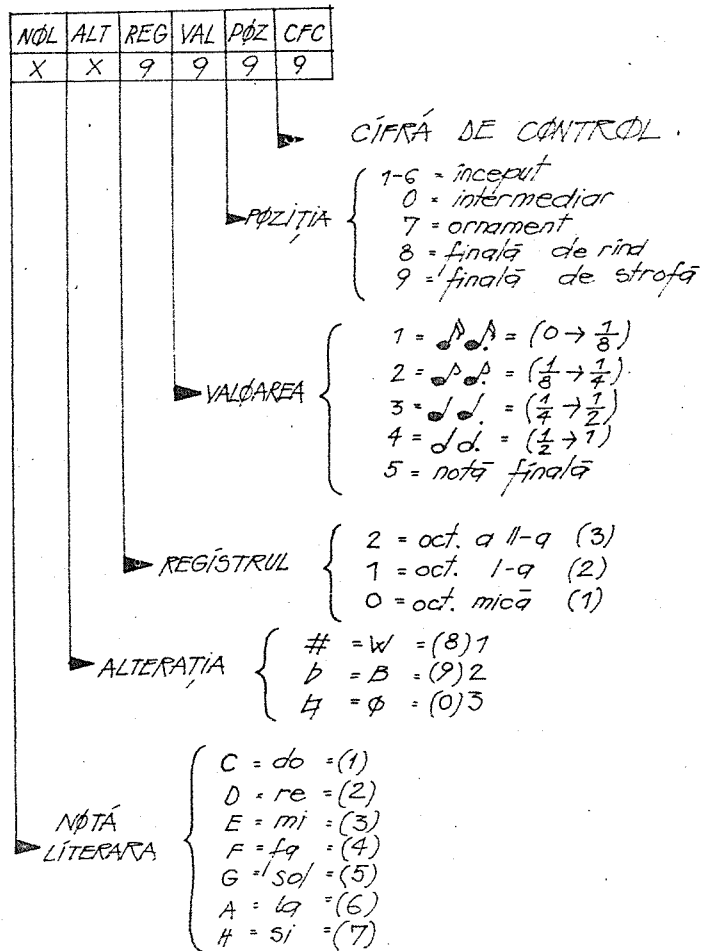 NØL ALT REG VAL PØZ CFC
X X 9 9 9 9
CÍFRĂ DE CØNTRØL.
PØZIȚIA
1-6 = început
0 = intermediar
7 = ornament
8 = finală de rînd
9 = finală de strofă
VALØAREA
1 = 𝅘𝅥𝅯 𝅘𝅥𝅯. = (0 → 1/8)
2 = ♪ ♪. = (1/8 → 1/4)
3 = ♩ ♩. = (1/4 → 1/2)
4 = 𝅗𝅥 𝅗𝅥. = (1/2 → 1)
5 = notă finală
REGÍSTRUL
2 = oct. a II-a (3)
1 = oct. I-a (2)
0 = oct. mică (1)
ALTERAȚIA
# = W = (8)1
♭ = B = (9)2
♮ = Ø = (0)3
NØTĂ
LÍTERARA
C = do = (1)
D = re = (2)
E = mi = (3)
F = fa = (4)
G = sol = (5)
A = la = (6)
H = si = (7)